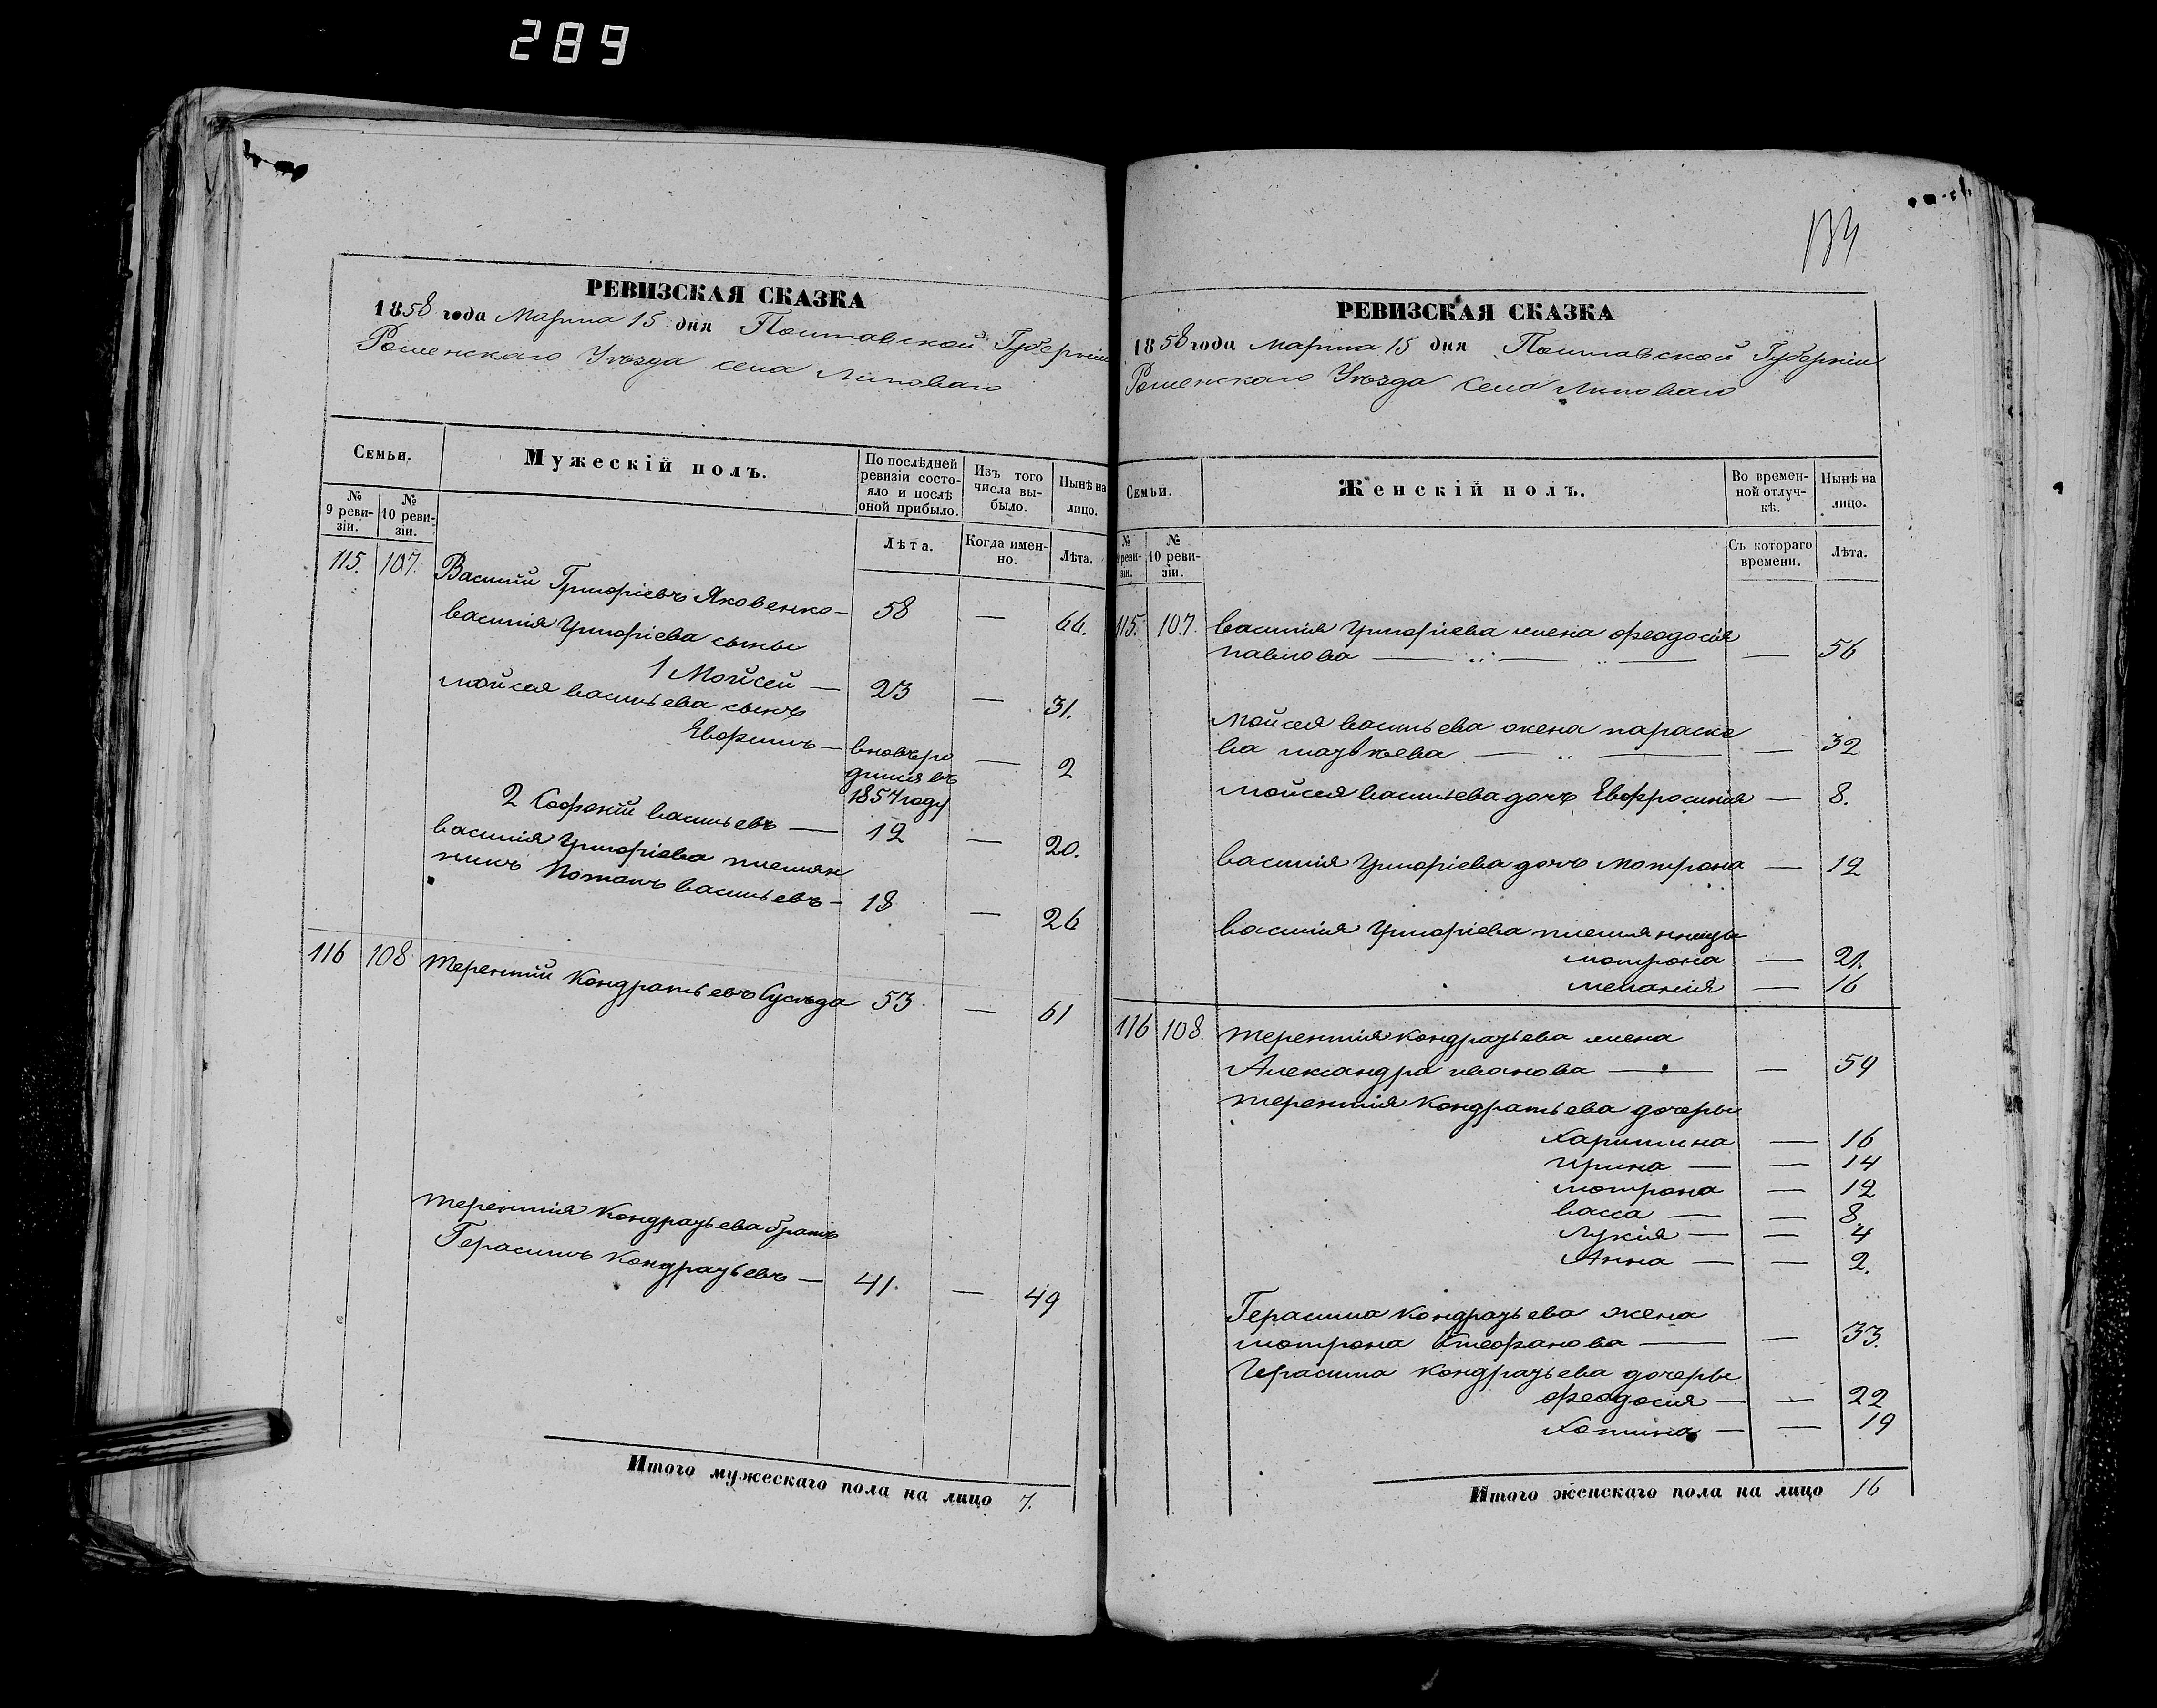 289
РЕВИЗСКАЯ СКАЗКА
1858 года Марта 15 дня Полтавской Губерніи
Роменскаго Уѣзда села Липоваго
Семьи.
Мужескій полъ.
По послѣдней ревизіи состояло и послѣ оной прибыло.
Изъ того числа выбыло.
Нынѣ на лицо.
№ 9 ревизіи.
№ 10 ревизіи.
Лѣта.
Когда именно.
Лѣта.
115. 107. Василій Григоріевъ Яковенко — 58 — 66.
Василія Григоріева сыны
1 Мойсей — 23 — 31.
Мойсея Васильева сынъ
вновь ро
— 2
дился въ
1857 году
2 Софоній Васильевъ — 12 — 20.
Василія Григоріева племян
никъ Потапъ Васильевъ — 18 — 26
116 108 Терентій Кондратьевъ Сусѣда 53 — 61
Терентія Кондратьева братъ
Герасимъ Кондратьевъ — 41. — 49
Итого мужескаго пола на лицо 7.
134
РЕВИЗСКАЯ СКАЗКА
1858 года Марта 15 дня Полтавской Губерніи
Роменскаго Уѣзда села Липоваго
Семьи.
Женскій полъ.
Во временной отлучкѣ.
Нынѣ на лицо.
№ 9 ревизіи.
№ 10 ревизіи.
Съ котораго времени.
Лѣта.
115. 107. Василія Григоріева жена Феодосія
Павлова — — — — 56
Мойсея Васильева жена Параске
ва — — — 32
Мойсея Васильева дочь Евфросинія — 8.
Василія Григоріева дочь Мотрона — 12
Василія Григоріева племянницы
Мотрона — 21.
Меланія — 16
116 108. Терентія Кондратьева жена
Александра Иванова — — 59
Терентія Кондратьева дочеры
Харитина — 16
Ирина — — 14
Мотрона — 12
Васса — — 8.
Лукія — — 4
Анна — — 2.
Герасима Кондратьева жена
Мотрона Стефанова — — 33.
Герасима Кондратьева дочеры
Феодосія — — 22
Хотина — — 19
Итого женскаго пола на лицо 16